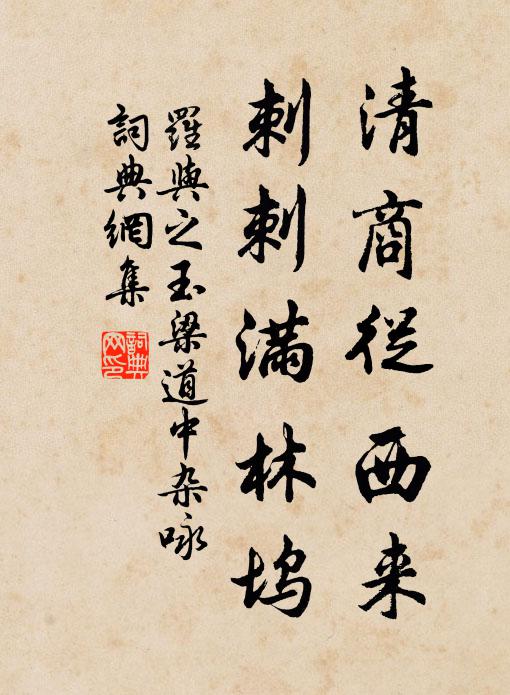 清商從西来
刺刺滿林坞
羅與之玉梁道中杂咏
詞典網集
詞典网印